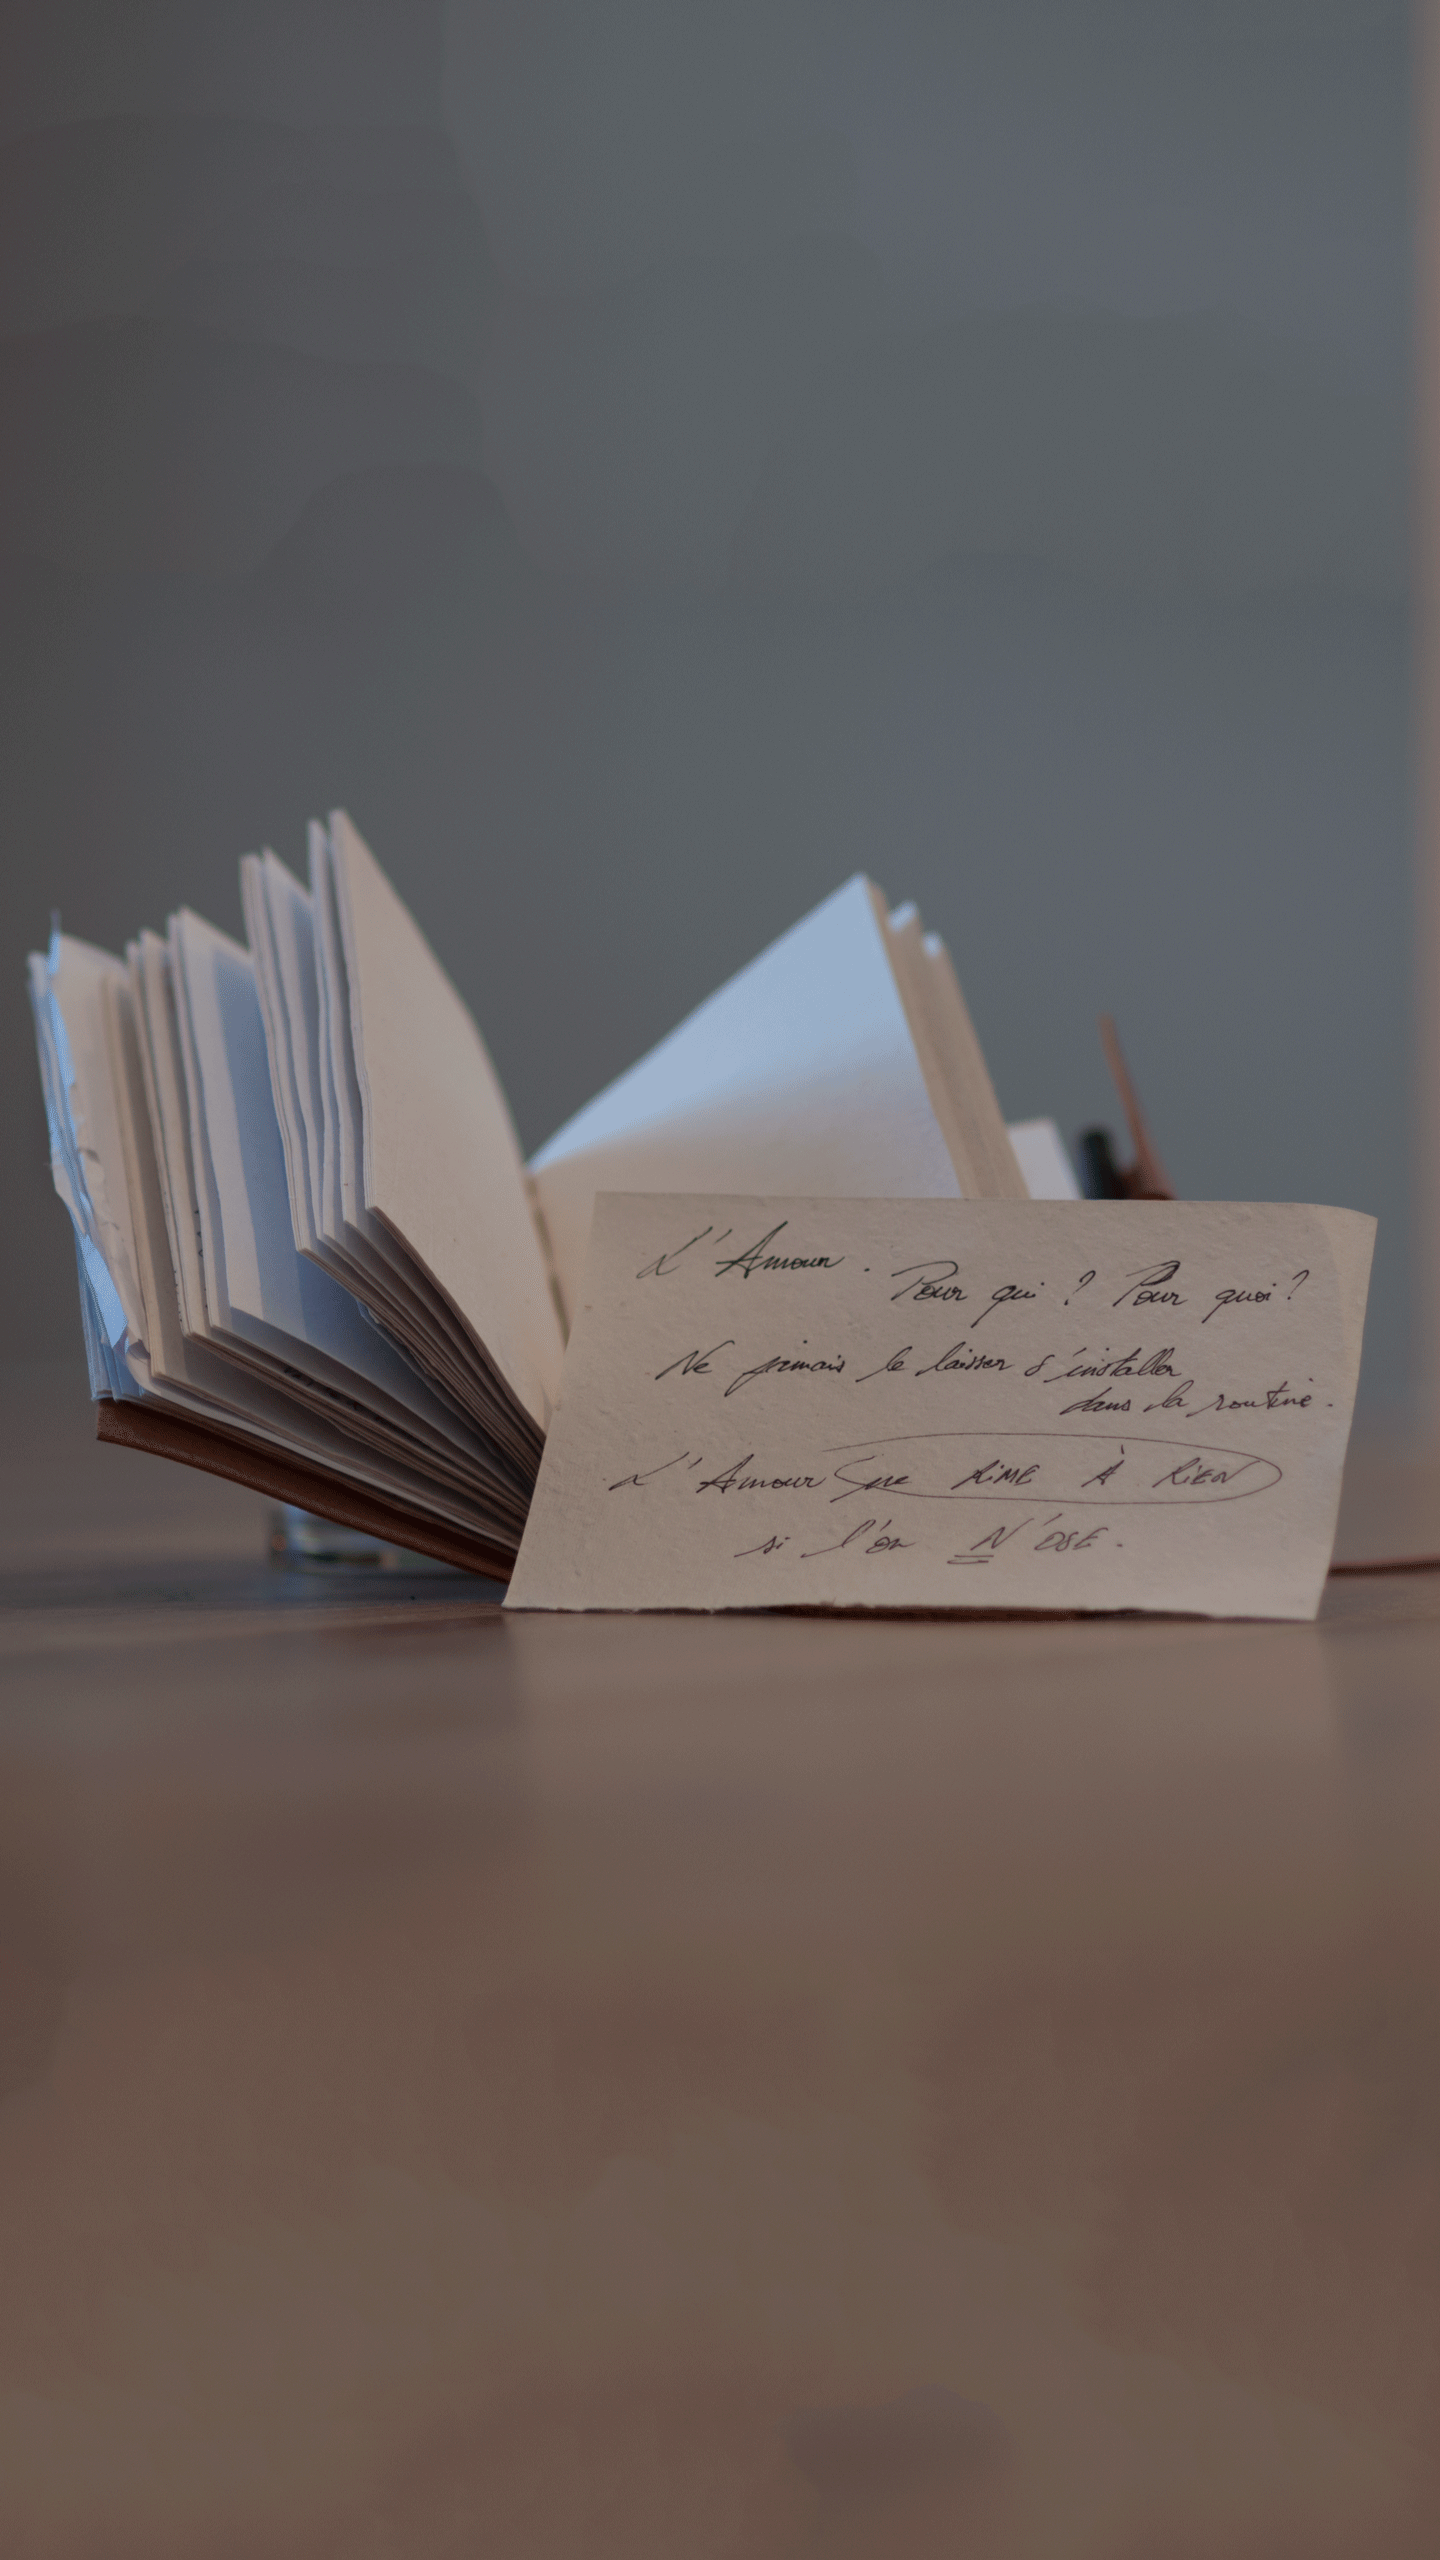 L'Amour.
Pour qui ? Pour quoi ?
Ne jamais le laisser s'installer
dans la routine.
L'Amour que RiME À RiEN
si l'on N'OSE.